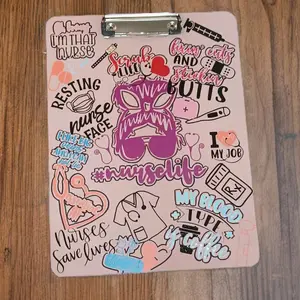 I'M THAT
NURSE
Scrub
LIFE
AND
BUTTS
RESTING
nurse
FACE
I
MY JOB
#nurselife
MY BLOOD
TYPE
is coffee
Nurses
Save lives